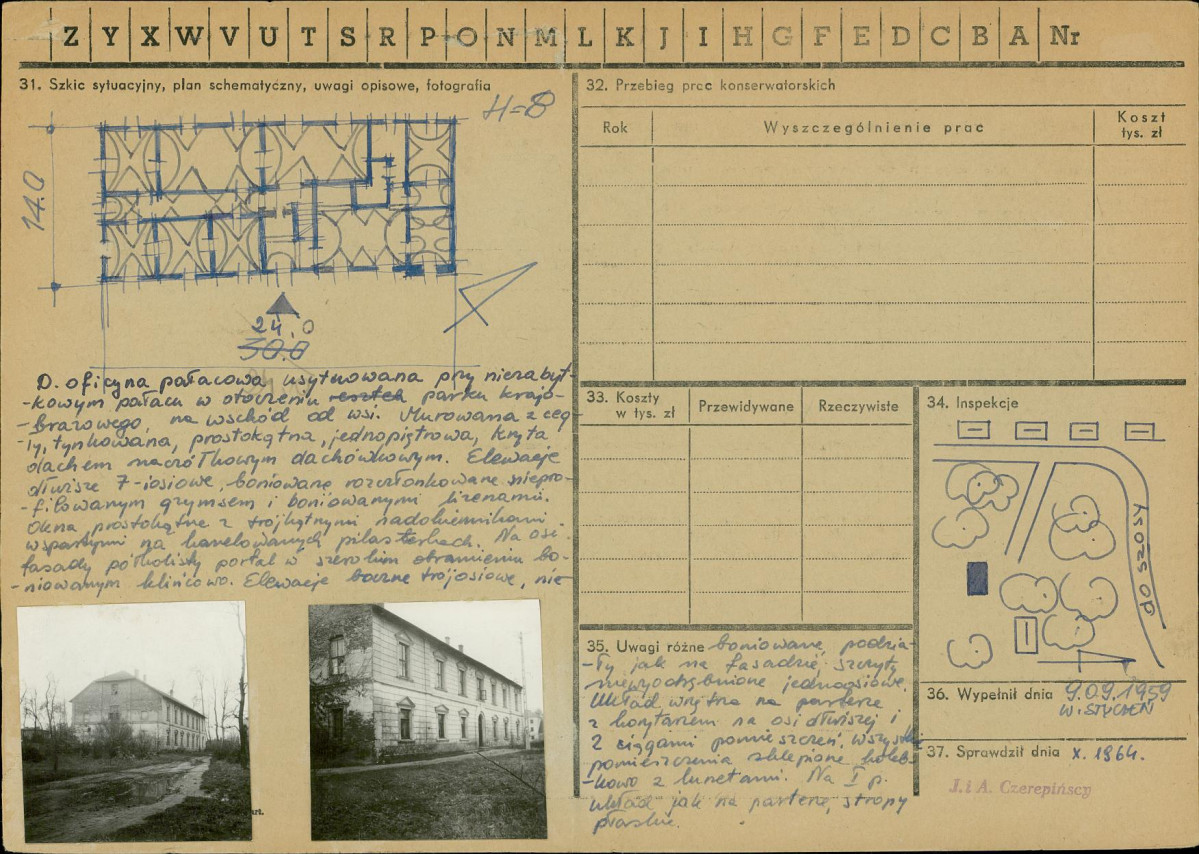 Z Y X W V U T S R P O N M L K J I H G F E D C B A Nr
31. Szkic sytuacyjny, plan schematyczny, uwagi opisowe, fotografia
H=8
14.0
24,0
30.0
D. oficyna pałacowa, usytuowana przy niezabyt-
-kowym pałacu w otoczeniu resztek parku krajo-
-brazowego, na wschód od wsi. Murowana z ceg
-ły, tynkowana, prostokątna, jednopiętrowa, kryta
dachem naczółkowym dachówkowym. Elewacje
dłuższe 7-iosiowe, boniowane rozczłonkowane niepro-
-filowanym gzymsem i boniowanymi lizenami.
Okna prostokątne z trójkątnymi nadokiennikami
wspartymi na kanelowanych pilasterkach. Na osi
fasady półkolisty portal w szerokim obramieniu bo-
-niowanym klińcowo. Elewacje boczne trójosiowe, nie
art.
32. Przebieg prac konserwatorskich
Rok
Wyszczególnienie prac
Koszt
tys. zł
33. Koszty
w tys. zł
Przewidywane
Rzeczywiste
34. Inspekcje
DO SZOSY
35. Uwagi różne boniowane, podzia-
-ły jak na fasadzie, szczyty
niewyodrębnione jednoosiowe.
Układ wnętrza na parterze
z korytarzem na osi dłuższej i
2 ciągami pomieszczeń. Wszystkie
pomieszczenia sklepione koleb-
-kowo z lunetami. Na I p.
układ jak na parterze, stropy
płaskie.
36. Wypełnił dnia 9.09.1959
W. STYCZEŃ
37. Sprawdził dnia X. 1964.
J. i A. Czerepińscy